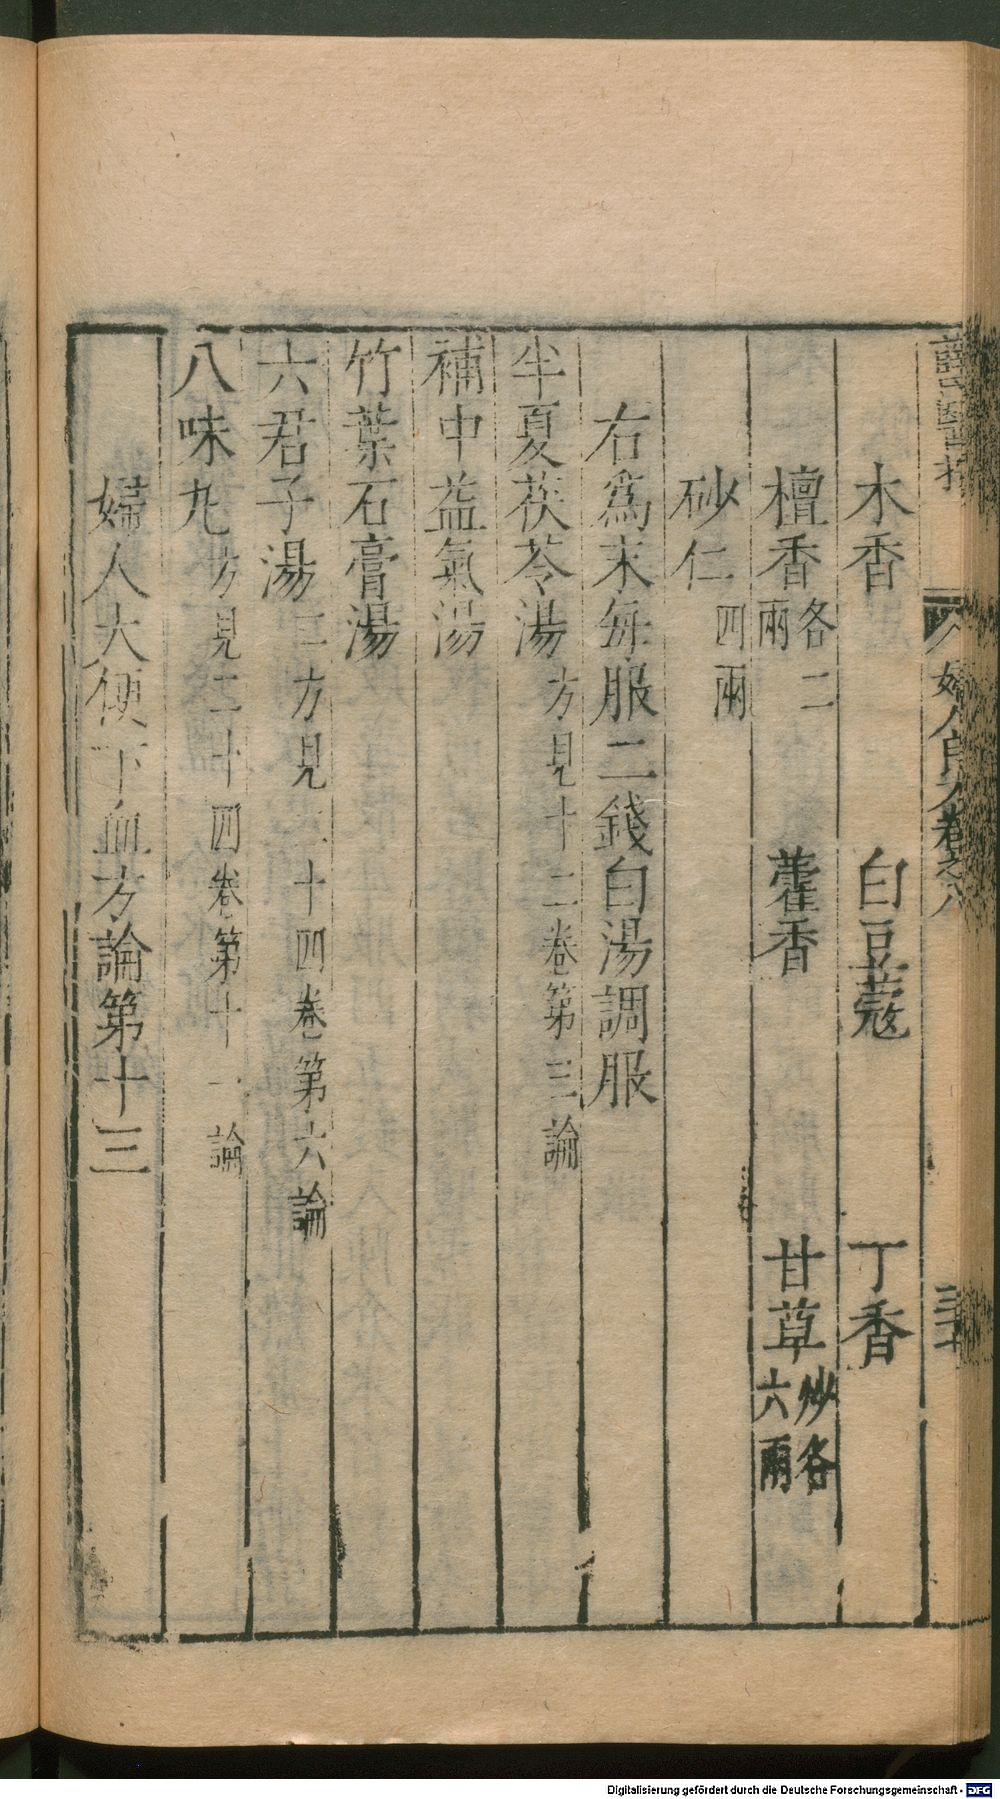 薛氏醫按
婦人良方卷之八
木香　白豆蔻　丁香
檀香各二兩　藿香　甘草炒各六兩
砂仁四兩
右爲末每服二錢白湯調服
半夏茯苓湯方見十二卷第三論
補中益氣湯
竹葉石膏湯
六君子湯三方見二十四卷第六論
八味丸方見二十四卷第十一論
婦人大便下血方論第十三
Digitalisierung gefördert durch die Deutsche Forschungsgemeinschaft - DFG